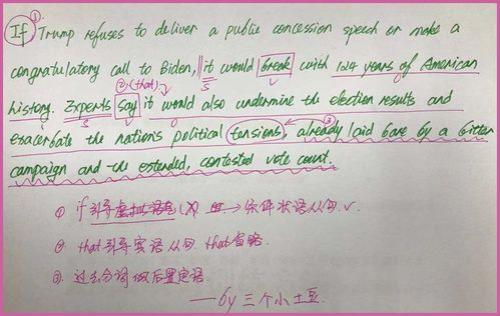 ①
If Trump refuses to deliver a public concession speech or make a
congratulatory call to Biden, it would break with 124 years of American
S V
② (that)
history. Experts say it would also undermine the election results and
S V
exacerbate the nation's political tensions, already laid bare by a bitter
③
campaign and the extended, contested vote count.
① if 引导虚拟语气 (X) → 条件状语从句. √
② that引导宾语从句. that省略.
③. 过去分词做后置定语.
——by 三个小土豆.